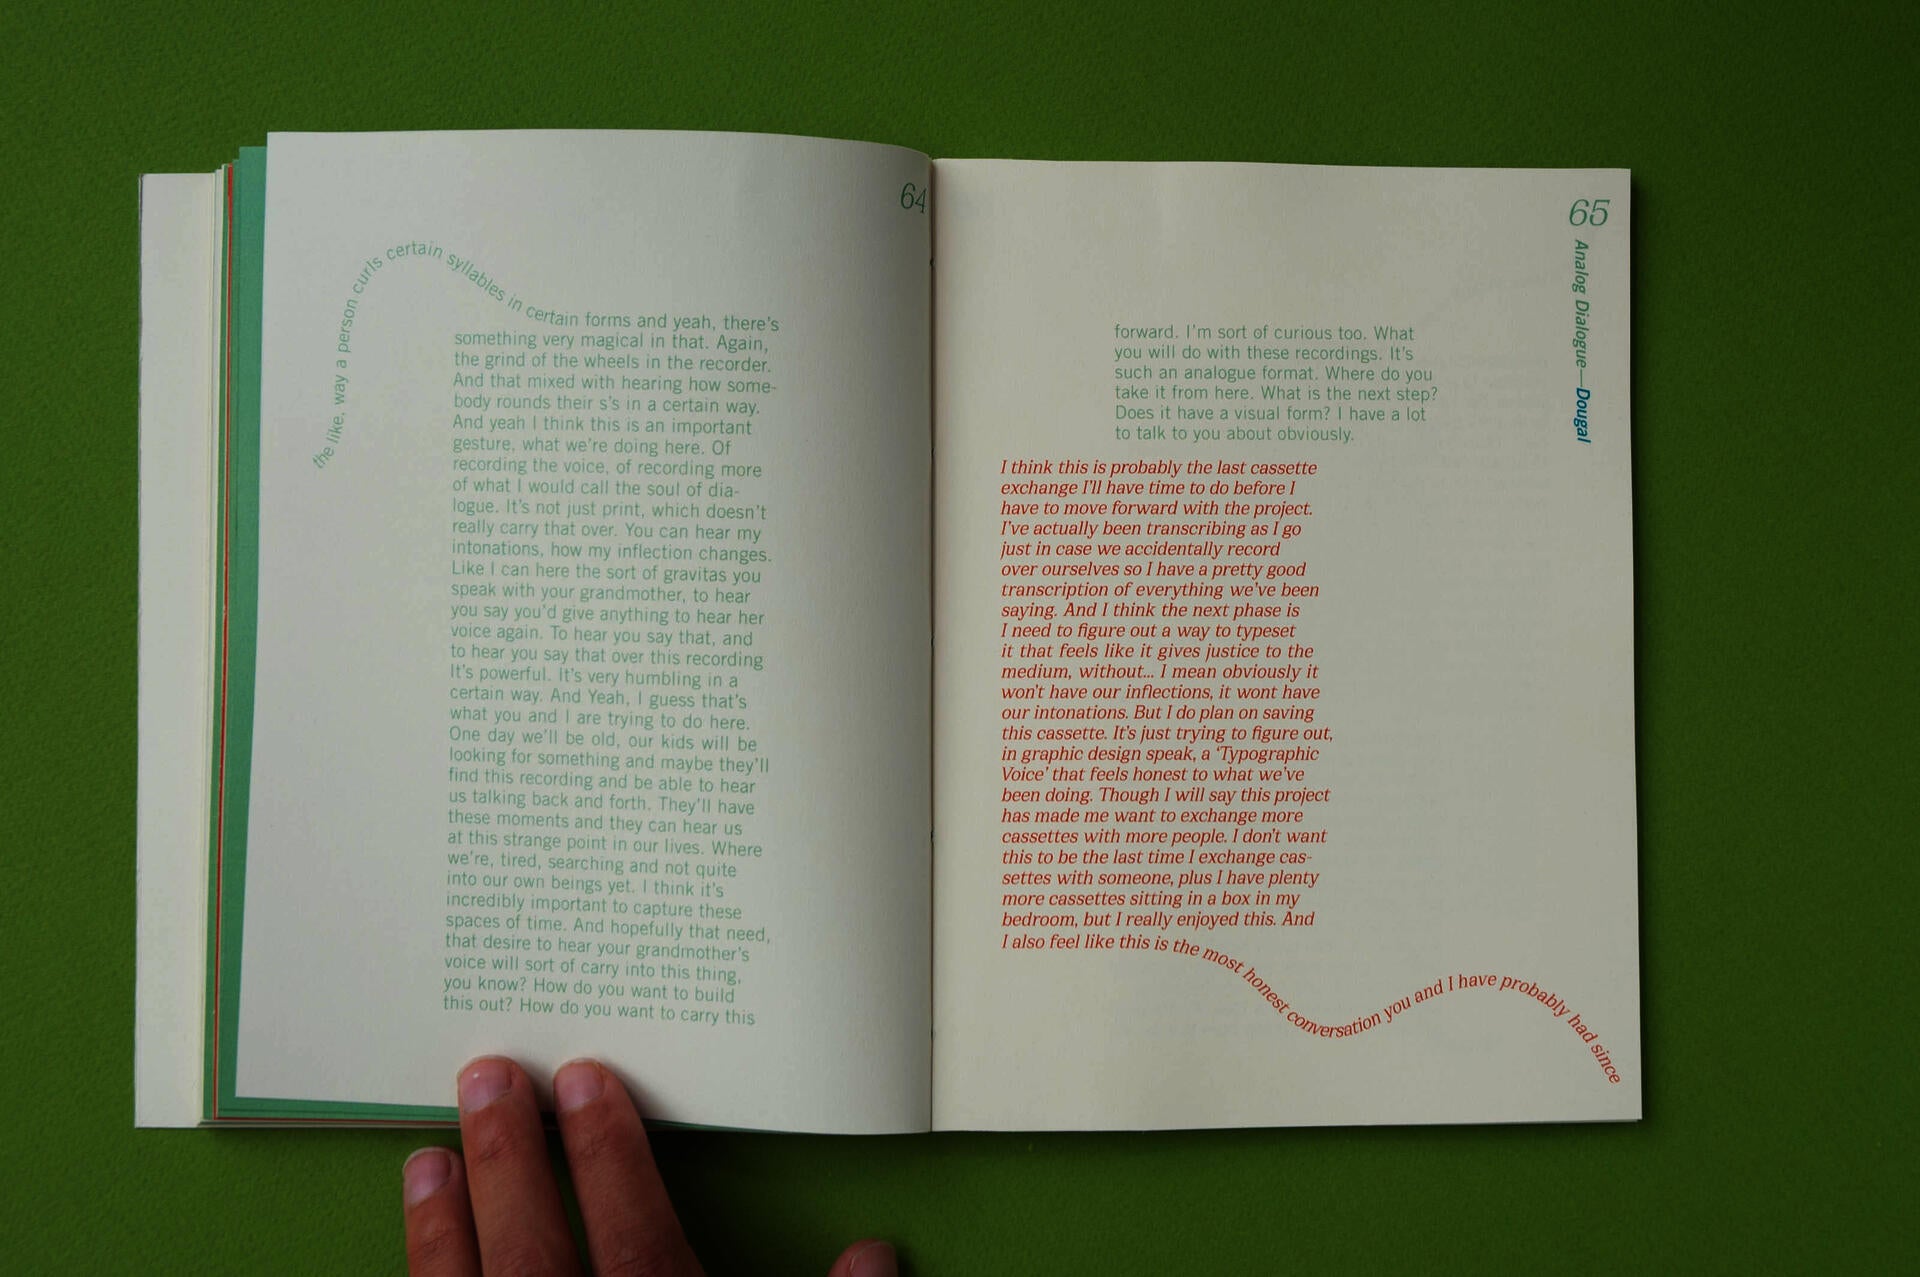 64
the like, way a person curls certain syllables in certain forms and yeah, there's
something very magical in that. Again,
the grind of the wheels in the recorder.
And that mixed with hearing how some-
body rounds their s's in a certain way.
And yeah I think this is an important
gesture, what we're doing here. Of
recording the voice, of recording more
of what I would call the soul of dia-
logue. It's not just print, which doesn't
really carry that over. You can hear my
intonations, how my inflection changes.
Like I can here the sort of gravitas you
speak with your grandmother, to hear
you say you'd give anything to hear her
voice again. To hear you say that, and
to hear you say that over this recording
It's powerful. It's very humbling in a
certain way. And Yeah, I guess that's
what you and I are trying to do here.
One day we'll be old, our kids will be
looking for something and maybe they'll
find this recording and be able to hear
us talking back and forth. They'll have
these moments and they can hear us
at this strange point in our lives. Where
we're, tired, searching and not quite
into our own beings yet. I think it's
incredibly important to capture these
spaces of time. And hopefully that need,
that desire to hear your grandmother's
voice will sort of carry into this thing,
you know? How do you want to build
this out? How do you want to carry this
65
Analog Dialogue—Dougal
forward. I'm sort of curious too. What
you will do with these recordings. It's
such an analogue format. Where do you
take it from here. What is the next step?
Does it have a visual form? I have a lot
to talk to you about obviously.
I think this is probably the last cassette
exchange I'll have time to do before I
have to move forward with the project.
I've actually been transcribing as I go
just in case we accidentally record
over ourselves so I have a pretty good
transcription of everything we've been
saying. And I think the next phase is
I need to figure out a way to typeset
it that feels like it gives justice to the
medium, without... I mean obviously it
won't have our inflections, it wont have
our intonations. But I do plan on saving
this cassette. It's just trying to figure out,
in graphic design speak, a 'Typographic
Voice' that feels honest to what we've
been doing. Though I will say this project
has made me want to exchange more
cassettes with more people. I don't want
this to be the last time I exchange cas-
settes with someone, plus I have plenty
more cassettes sitting in a box in my
bedroom, but I really enjoyed this. And
I also feel like this is the most honest conversation you and I have probably had since